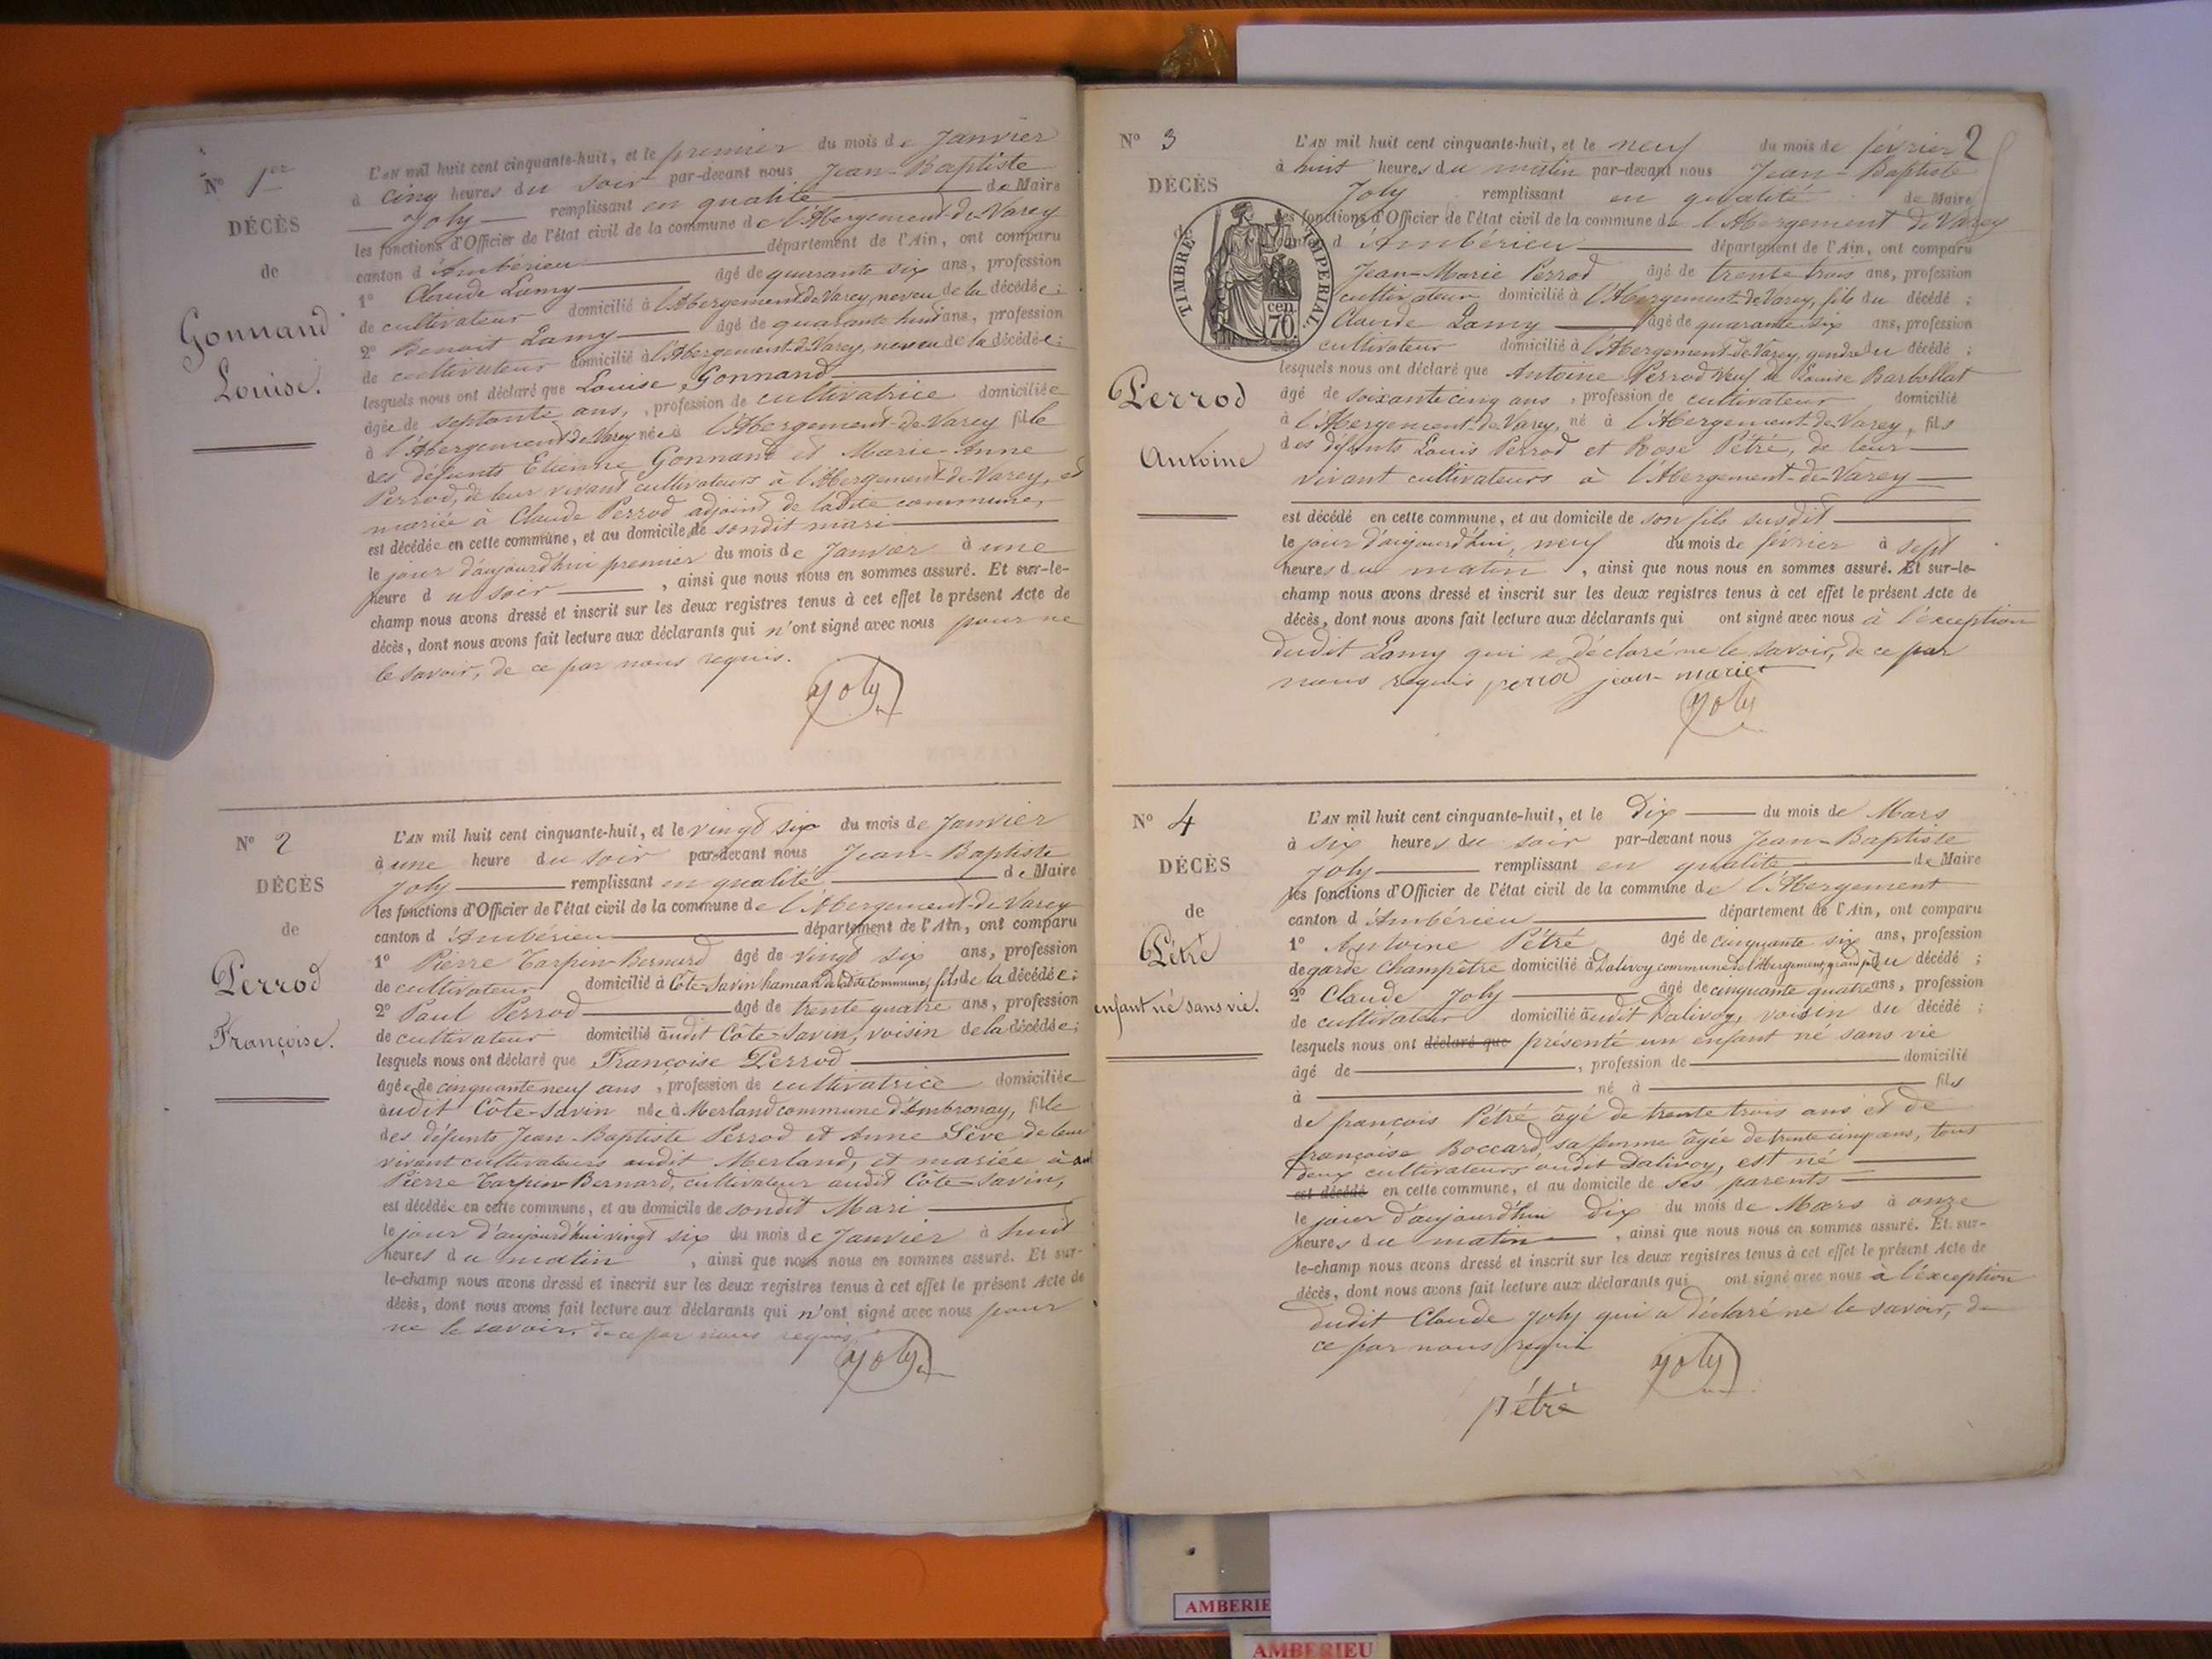 N° 1er
DÉCÈS
de
Gonnand
Louise.
L'AN mil huit cent cinquante-huit, et le premier du mois de Janvier
à cinq heures du soir par-devant nous Jean-Baptiste
Joly remplissant en qualité de Maire
les fonctions d'Officier de l'état civil de la commune de l'Abergement-de-Varey
canton d'Ambérieu département de l'Ain, ont comparu
1° Claude Lamy âgé de quarante six ans, profession
de cultivateur domicilié à l'Abergement de Varey, neveu de la décédée;
2° Benoit Lamy âgé de quarante huit ans, profession
de cultivateur domicilié à l'Abergement-de-Varey, neveu de la décédée;
lesquels nous ont déclaré que Louise Gonnand
âgée de septante ans, profession de cultivatrice domiciliée
à l'Abergement de Varey née à l'Abergement-de-Varey fille
des défunts Etienne Gonnand et Marie-Anne
Perrod, de leur vivant cultivateurs à l'Abergement-de-Varey, et
mariée à Claude Perrod adjoint de ladite commune,
est décédée en cette commune, et au domicile de sondit mari
le jour d'aujourd'hui premier du mois de Janvier à une
heure du soir, ainsi que nous nous en sommes assuré. Et sur-le-
champ nous avons dressé et inscrit sur les deux registres tenus à cet effet le présent Acte de
décès, dont nous avons fait lecture aux déclarants qui n'ont signé avec nous pour ne
le savoir, de ce par nous requis.
Joly
N° 2
DÉCÈS
de
Perrod
Françoise.
L'AN mil huit cent cinquante-huit, et le vingt six du mois de Janvier
à une heure du soir par-devant nous Jean-Baptiste
Joly remplissant en qualité de Maire
les fonctions d'Officier de l'état civil de la commune de l'Abergement-de-Varey
canton d'Ambérieu département de l'Ain, ont comparu
1° Pierre Tarpin-Bernard âgé de vingt six ans, profession
de cultivateur domicilié à Côte-Savin hameau de ladite commune, fils de la décédée;
2° Paul Perrod âgé de trente quatre ans, profession
de cultivateur domicilié audit Côte-Savin, voisin de la décédée;
lesquels nous ont déclaré que Françoise Perrod
âgée de cinquante neuf ans, profession de cultivatrice domiciliée
audit Côte-Savin née à Merland commune d'Ambronay, fille
des défunts Jean-Baptiste Perrod et Anne Sève de leur
vivant cultivateurs audit Merland, et mariée à
Pierre Tarpin-Bernard, cultivateur audit Côte-Savin,
est décédée en cette commune, et au domicile de sondit Mari
le jour d'aujourd'hui vingt six du mois de Janvier à huit
heures du matin, ainsi que nous nous en sommes assuré. Et sur-
le-champ nous avons dressé et inscrit sur les deux registres tenus à cet effet le présent Acte de
décès, dont nous avons fait lecture aux déclarants qui n'ont signé avec nous pour
ne le savoir, de ce par nous requis.
Joly
2
N° 3
DÉCÈS
Perrod
Antoine
TIMBRE IMPERIAL
70 cen
L'AN mil huit cent cinquante-huit, et le neuf du mois de février
à huit heures du matin par-devant nous Jean-Baptiste
Joly remplissant en qualité de Maire
les fonctions d'Officier de l'état civil de la commune de l'Abergement de Varey
canton d'Ambérieu département de l'Ain, ont comparu
Jean-Marie Perrod âgé de trente trois ans, profession
cultivateur domicilié à l'Abergement-de-Varey, fils du décédé;
Claude Lamy âgé de quarante six ans, profession
cultivateur domicilié à l'Abergement-de-Varey, gendre du décédé;
lesquels nous ont déclaré que Antoine Perrod veuf de Louise Barbollat
âgé de soixante cinq ans, profession de cultivateur domicilié
à l'Abergement-de-Varey, né à l'Abergement-de-Varey, fils
des défunts Louis Perrod et Rose Pétré, de leur
vivant cultivateurs à l'Abergement-de-Varey
est décédé en cette commune, et au domicile de son fils susdit
le jour d'aujourd'hui, neuf du mois de février à sept
heures du matin, ainsi que nous nous en sommes assuré. Et sur-le-
champ nous avons dressé et inscrit sur les deux registres tenus à cet effet le présent Acte de
décès, dont nous avons fait lecture aux déclarants qui ont signé avec nous à l'exception
dudit Lamy qui a déclaré ne le savoir, de ce par
nous requis perrod jean-marie
Joly
N° 4
DÉCÈS
de
Pétré
enfant né sans vie.
L'AN mil huit cent cinquante-huit, et le Dix du mois de Mars
à six heures du soir par-devant nous Jean-Baptiste
Joly remplissant en qualité de Maire
les fonctions d'Officier de l'état civil de la commune de l'Abergement
canton d'Ambérieu département de l'Ain, ont comparu
1° Antoine Pétré âgé de cinquante six ans, profession
de garde champêtre domicilié à Dalivoy commune de l'Abergement, grand père du décédé;
2° Claude Joly âgé de cinquante quatre ans, profession
de cultivateur domicilié audit Dalivoy, voisin du décédé;
lesquels nous ont déclaré que présenté un enfant né sans vie
âgé de, profession de domicilié
à né à fils
de françois Pétré âgé de trente trois ans et de
françoise Boccard, sa femme âgée de trente cinq ans, tous
deux cultivateurs audit Dalivoy, est né
est décédé en cette commune, et au domicile de ses parents
le jour d'aujourd'hui dix du mois de Mars à onze
heures du matin, ainsi que nous nous en sommes assuré. Et sur-
le-champ nous avons dressé et inscrit sur les deux registres tenus à cet effet le présent Acte de
décès, dont nous avons fait lecture aux déclarants qui ont signé avec nous à l'éxception
dudit Claude Joly qui a déclaré ne le savoir, de
ce par nous requis
Joly
pétré
AMBERIE
AMBERIEU